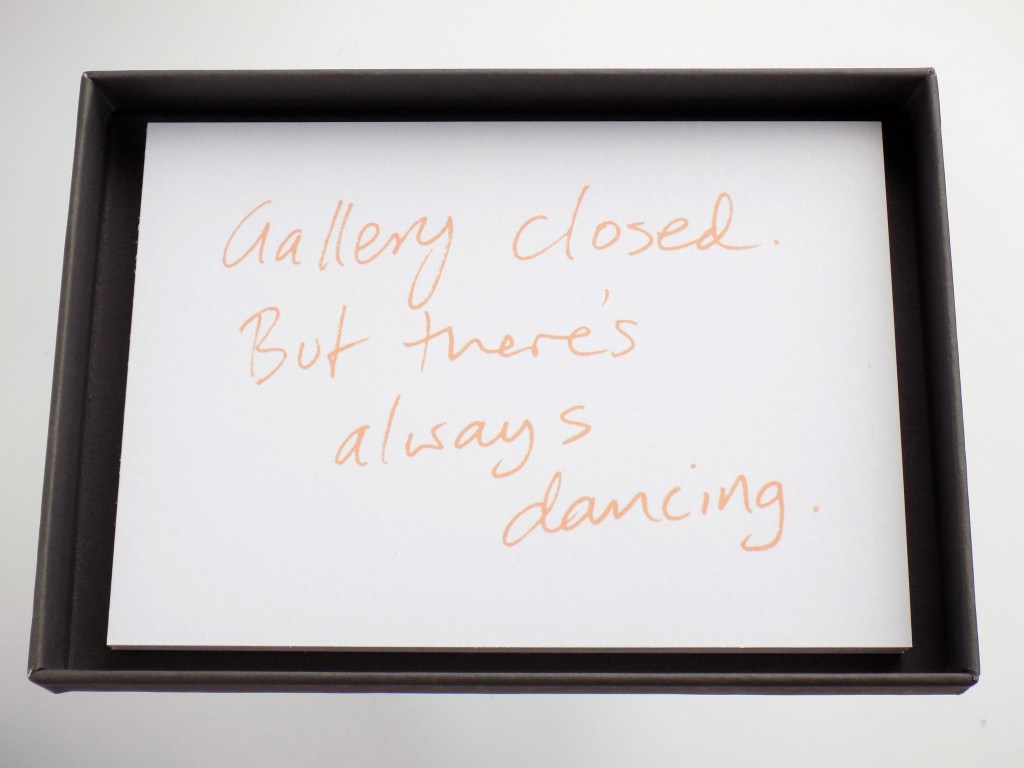 Gallery closed.
But there's
always
dancing.